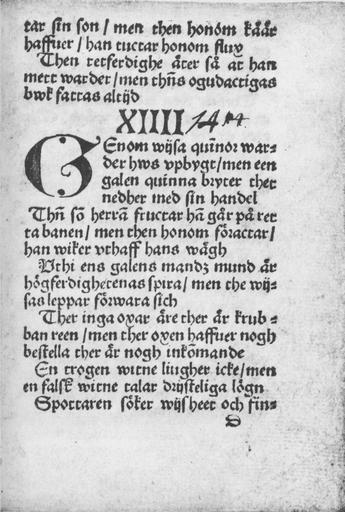 tar sin son / men then honom kåår
haffuer / han tuctar honom flux
Then retferdighe åter så at han
mett warder / men thñs ogudactigas
bwk fattas altijd
XIIII 14
GEnom wijsa quiñor war-
der hws vpbygt / men een
galen quinna bryter thet
nedher med sin handel
Thñ sõ herrã fructar hã går på ret
ta banen / men then honom föractar /
han wiker vthaff hans wägh
Vthi ens galens mandz mund är
högferdighetenas spira / men the wij-
sas leppar förwara sich
Ther inga oxar äre ther är krub-
ban reen / men ther oxen haffuer nogh
bestella ther är nogh inkõmande
En trogen witne liugher icke / men
en falsk witne talar drijsteliga lögn
Spottaren söker wijsheet och fin-
D